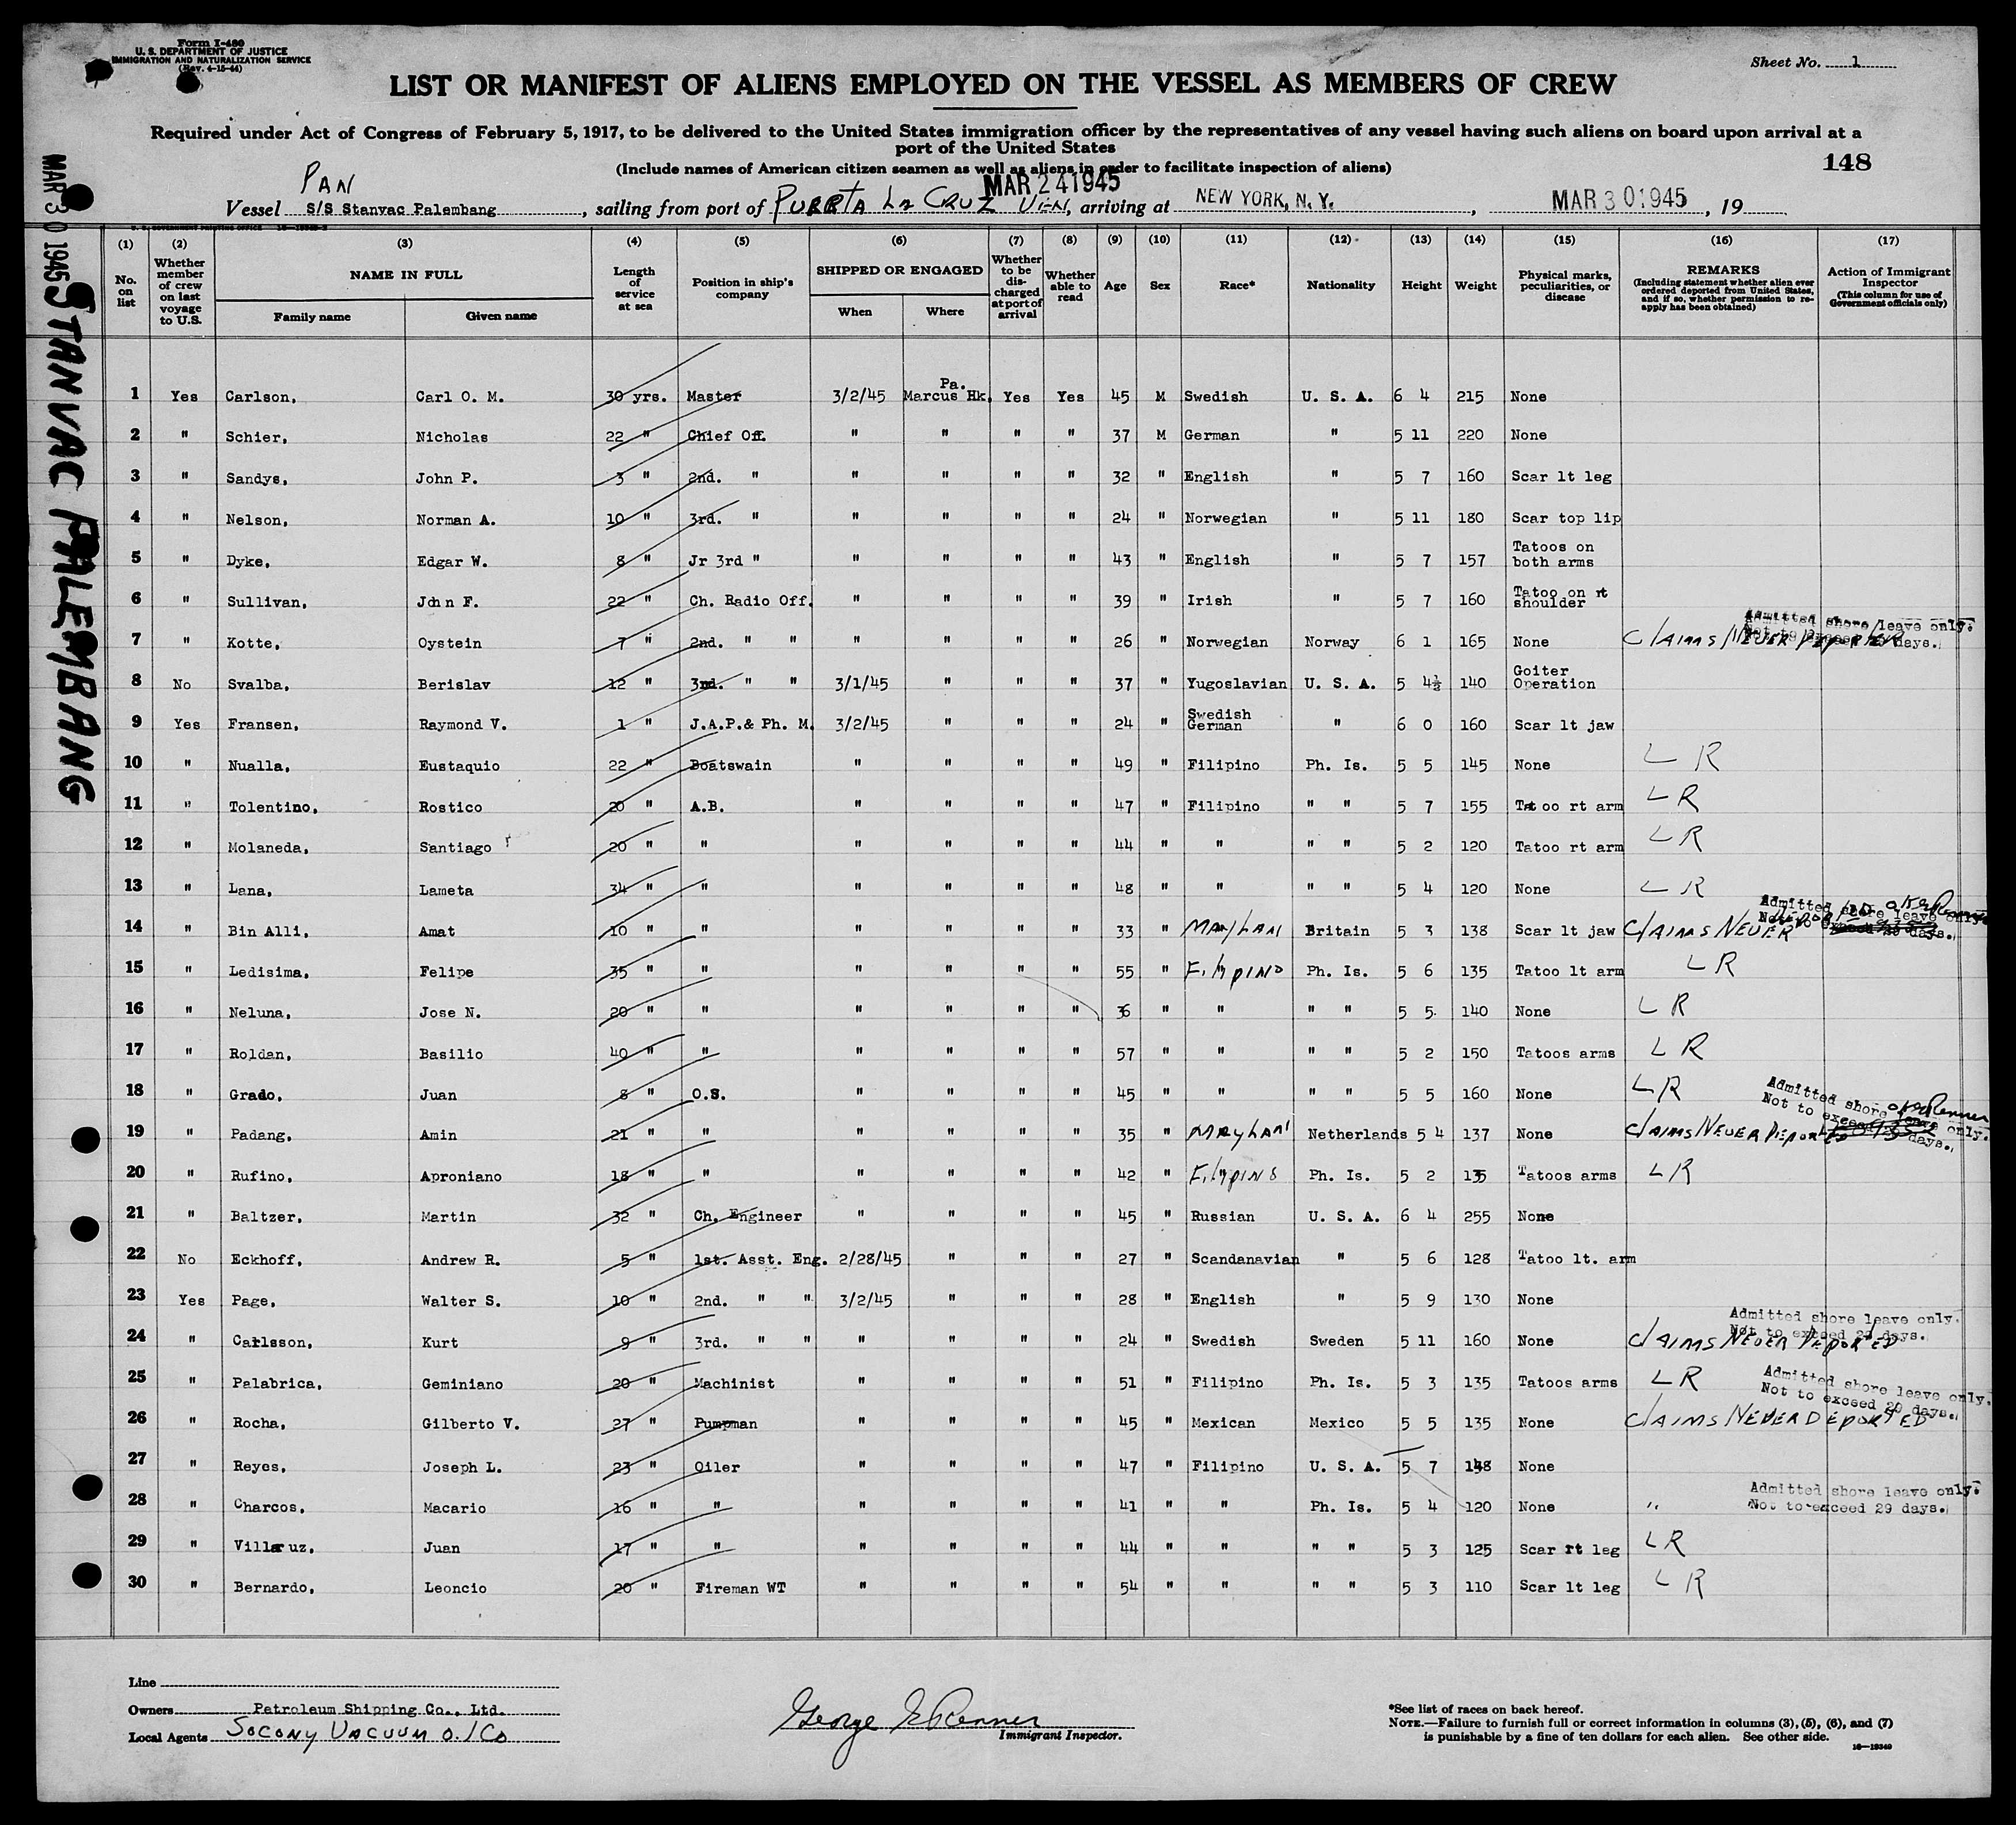 Form I-480
U. S. DEPARTMENT OF JUSTICE
IMMIGRATION AND NATURALIZATION SERVICE
(Rev. 4-15-44)
Sheet No. 1
LIST OR MANIFEST OF ALIENS EMPLOYED ON THE VESSEL AS MEMBERS OF CREW
Required under Act of Congress of February 5, 1917, to be delivered to the United States immigration officer by the representatives of any vessel having such aliens on board upon arrival at a
port of the United States
(Include names of American citizen seamen as well as aliens in order to facilitate inspection of aliens)
148
PAN
MAR 24 1945
Vessel S/S Stanvac Palembang, sailing from port of PUERTA La CRUZ VEN, arriving at NEW YORK, N. Y., MAR 30 1945, 19
MAR 30 1945 STANVAC PALEMBANG
(1) (2) (3) (4) (5) (6) (7) (8) (9) (10) (11) (12) (13) (14) (15) (16) (17)
No. on list
Whether member of crew on last voyage to U.S.
NAME IN FULL
Family name
Given name
Length of service at sea
Position in ship's company
SHIPPED OR ENGAGED
When
Where
Whether to be discharged at port of arrival
Whether able to read
Age
Sex
Race*
Nationality
Height
Weight
Physical marks, peculiarities, or disease
REMARKS
(Including statement whether alien ever ordered deported from United States, and if so, whether permission to reapply has been obtained)
Action of Immigrant Inspector
(This column for use of Government officials only)
1 Yes Carlson, Carl O. M. 30 yrs. Master 3/2/45 Pa. Marcus Hk. Yes Yes 45 M Swedish U. S. A. 6 4 215 None
2 " Schier, Nicholas 22 " Chief Off. " " " " 37 M German " 5 11 220 None
3 " Sandys, John P. 3 " 2nd. " " " " " 32 " English " 5 7 160 Scar lt leg
4 " Nelson, Norman A. 10 " 3rd. " " " " " 24 " Norwegian " 5 11 180 Scar top lip
5 " Dyke, Edgar W. 8 " Jr 3rd " " " " " 43 " English " 5 7 157 Tatoos on both arms
6 " Sullivan, John F. 22 " Ch. Radio Off. " " " " 39 " Irish " 5 7 160 Tatoo on rt shoulder
7 " Kotte, Oystein 7 " 2nd. " " " " " " 26 " Norwegian Norway 6 1 165 None CLAIMS NEVER DEPORTED Admitted shore leave only. Not to exceed 29 days.
8 No Svalba, Berislav 12 " 3rd. " " 3/1/45 " " " 37 " Yugoslavian U. S. A. 5 4½ 140 Goiter Operation
9 Yes Fransen, Raymond V. 1 " J.A.P.& Ph. M. 3/2/45 " " " 24 " Swedish German " 6 0 160 Scar lt jaw
10 " Nualla, Eustaquio 22 " Boatswain " " " " 49 " Filipino Ph. Is. 5 5 145 None L R
11 " Tolentino, Rostico 20 " A.B. " " " " 47 " Filipino " " 5 7 155 Tatoo rt arm L R
12 " Molaneda, Santiago 20 " " " " " " 44 " " " " 5 2 120 Tatoo rt arm L R
13 " Lana, Lameta 34 " " " " " " 48 " " " " 5 4 120 None L R
14 " Bin Alli, Amat 10 " " " " " " 33 " MAYLAN Britain 5 3 138 Scar lt jaw CLAIMS NEVER DEPORTED OK Renner Admitted shore leave only. Not to exceed 29 days.
15 " Ledisima, Felipe 35 " " " " " " 55 " FilipINO Ph. Is. 5 6 135 Tatoo lt arm L R
16 " Neluna, Jose N. 20 " " " " " " 36 " " " " 5 5 140 None L R
17 " Roldan, Basilio 40 " " " " " " 57 " " " " 5 2 150 Tatoos arms L R
18 " Grado, Juan 8 " O.S. " " " " 45 " " " " 5 5 160 None L R
19 " Padang, Amin 21 " " " " " " 35 " MAYLAN Netherlands 5 4 137 None CLAIMS NEVER DEPORTED OK Renner Admitted shore leave only. Not to exceed days.
20 " Rufino, Aproniano 18 " " " " " " 42 " FilipINO Ph. Is. 5 2 135 Tatoos arms L R
21 " Baltzer, Martin 32 " Ch. Engineer " " " " 45 " Russian U. S. A. 6 4 255 None
22 No Eckhoff, Andrew R. 5 " 1st. Asst. Eng. 2/28/45 " " " 27 " Scandanavian " 5 6 128 Tatoo lt. arm
23 Yes Page, Walter S. 10 " 2nd. " " 3/2/45 " " " 28 " English " 5 9 130 None
24 " Carlsson, Kurt 9 " 3rd. " " " " " " 24 " Swedish Sweden 5 11 160 None CLAIMS NEVER DEPORTED Admitted shore leave only. Not to exceed 29 days.
25 " Palabrica, Geminiano 20 " Machinist " " " " 51 " Filipino Ph. Is. 5 3 135 Tatoos arms L R
26 " Rocha, Gilberto V. 27 " Pumpman " " " " 45 " Mexican Mexico 5 5 135 None CLAIMS NEVER DEPORTED Admitted shore leave only. Not to exceed 29 days.
27 " Reyes, Joseph L. 23 " Oiler " " " " 47 " Filipino U. S. A. 5 7 148 None
28 " Charcos, Macario 16 " " " " " " 41 " " Ph. Is. 5 4 120 None " Admitted shore leave only. Not to exceed 29 days.
29 " Villaruz, Juan 17 " " " " " " 44 " " " " 5 3 125 Scar rt leg L R
30 " Bernardo, Leoncio 20 " Fireman WT " " " " 54 " " " " 5 3 110 Scar lt leg L R
Line
Owners Petroleum Shipping Co., Ltd.
Local Agents SOCONY VACUUM OIL CO
George E Renner
Immigrant Inspector.
*See list of races on back hereof.
NOTE.—Failure to furnish full or correct information in columns (3), (5), (6), and (7)
is punishable by a fine of ten dollars for each alien. See other side.
16—19349